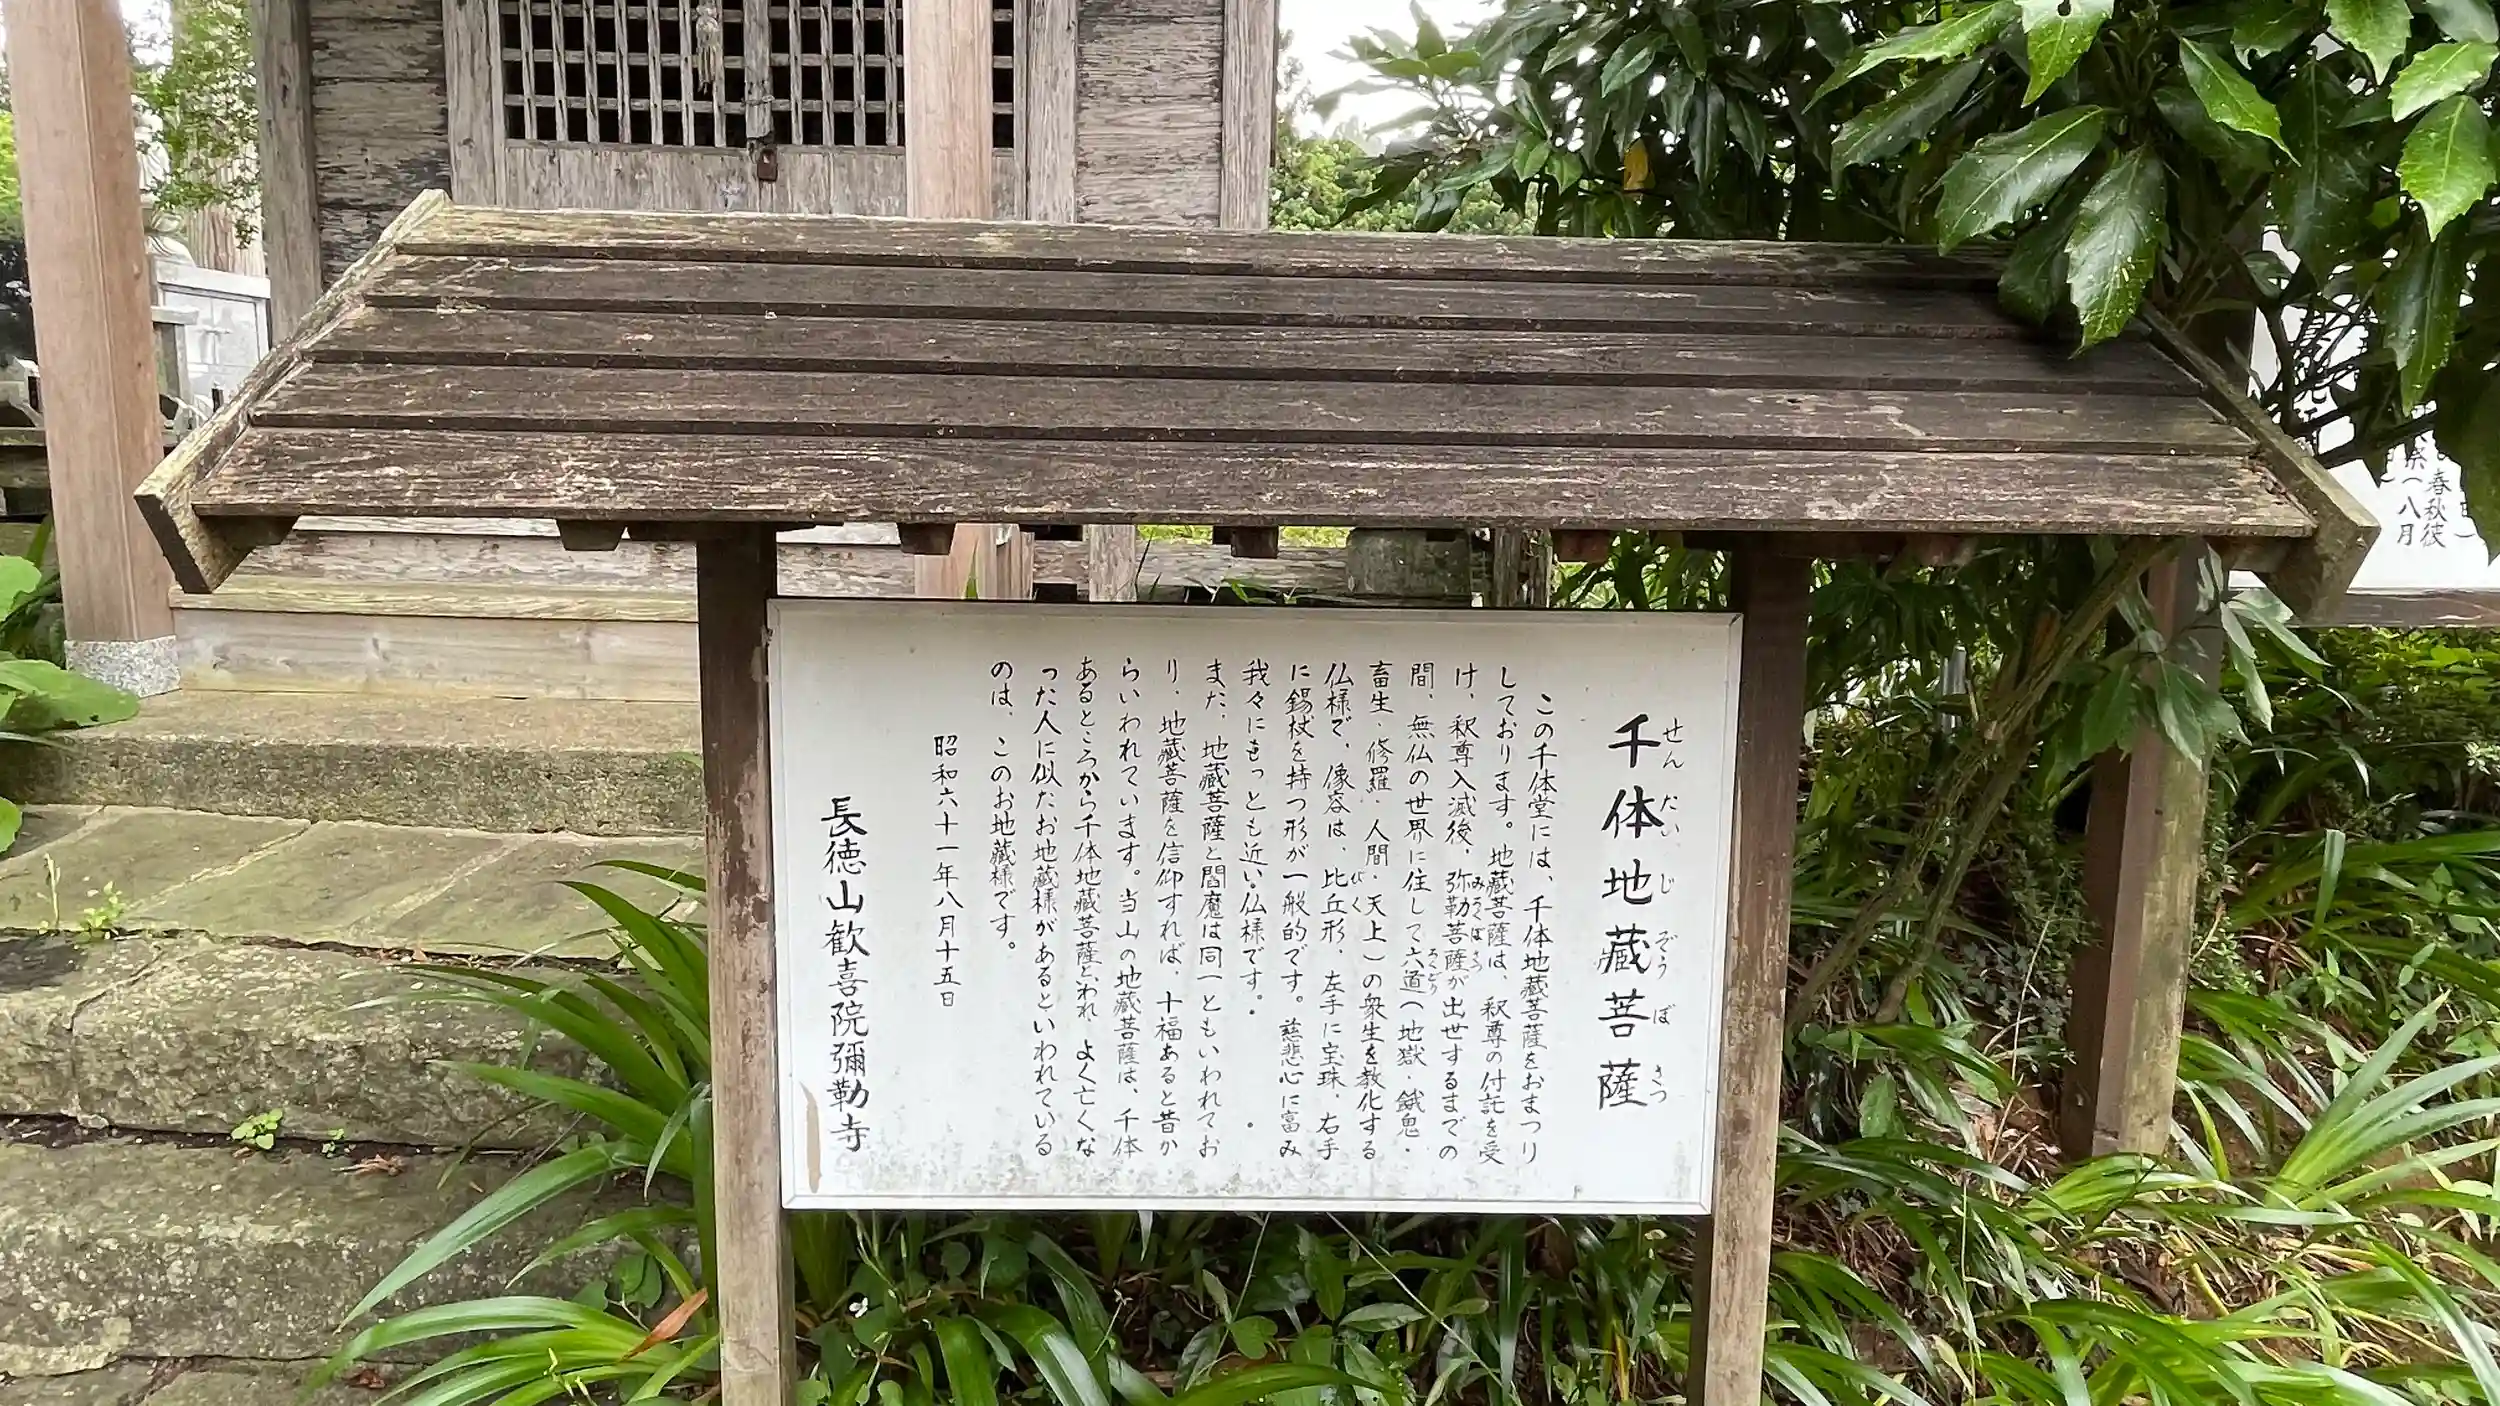 千体地蔵菩薩
せんたいじぞうぼさつ
この千体堂には、千体地蔵菩薩をおまつり
しております。地蔵菩薩は、釈尊の付託を受
け、釈尊入滅後、弥勒菩薩が出世するまでの
みろくぼさつ
間、無仏の世界に住して六道(地獄・餓鬼・
ろくどう
畜生・修羅・人間・天上)の衆生を教化する
仏様で、像容は、比丘形、左手に宝珠、右手
びく
に錫杖を持つ形が一般的です。慈悲心に富み
我々にもっとも近い仏様です。
また、地蔵菩薩と閻魔は同一ともいわれてお
り、地蔵菩薩を信仰すれば、十福あると昔か
らいわれています。当山の地蔵菩薩は、千体
あるところから千体地蔵菩薩といわれ、よく亡くな
った人に似たお地蔵様があるといわれている
のは、このお地蔵様です。
昭和六十一年八月十五日
長徳山歓喜院彌勒寺
春秋彼
(八月